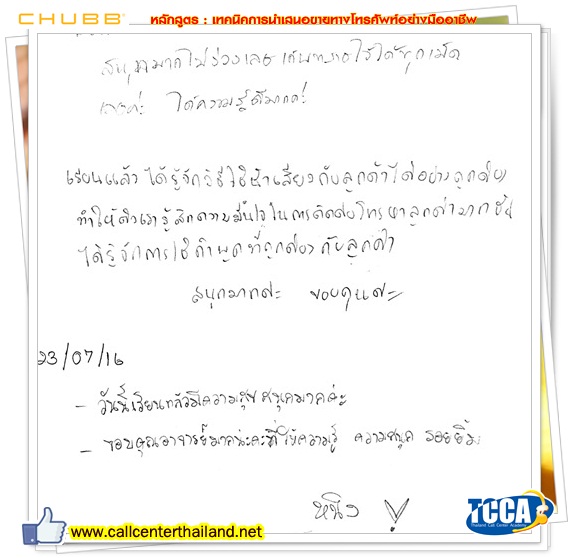 CHUBB
หลักสูตร : เทคนิคการนำเสนอขายทางโทรศัพท์อย่างมืออาชีพ
สนุกมากไม่ง่วงเลย
เลยค่ะ ได้ความรู้ดีมากค่ะ
เรียนแล้ว ได้รู้จักวิธีใช้น้ำเสียงกับลูกค้าได้อย่างถูกต้อง
ทำให้ตัวเรารู้สึกความมั่นใจในการติดต่อโทรหาลูกค้ามากขึ้น
ได้รู้จักการใช้คำพูดที่ถูกต้องกับลูกค้า
สนุกมากค่ะ ขอบคุณค่ะ
23/07/16
- วันนี้เรียนแล้วมีความสุข สนุกมากค่ะ
- ขอบคุณอาจารย์มากนะคะที่ให้ความรู้ ความสนุก รอยยิ้ม
หนิง
TCCA
Thailand Call Center Academy
www.callcenterthailand.net